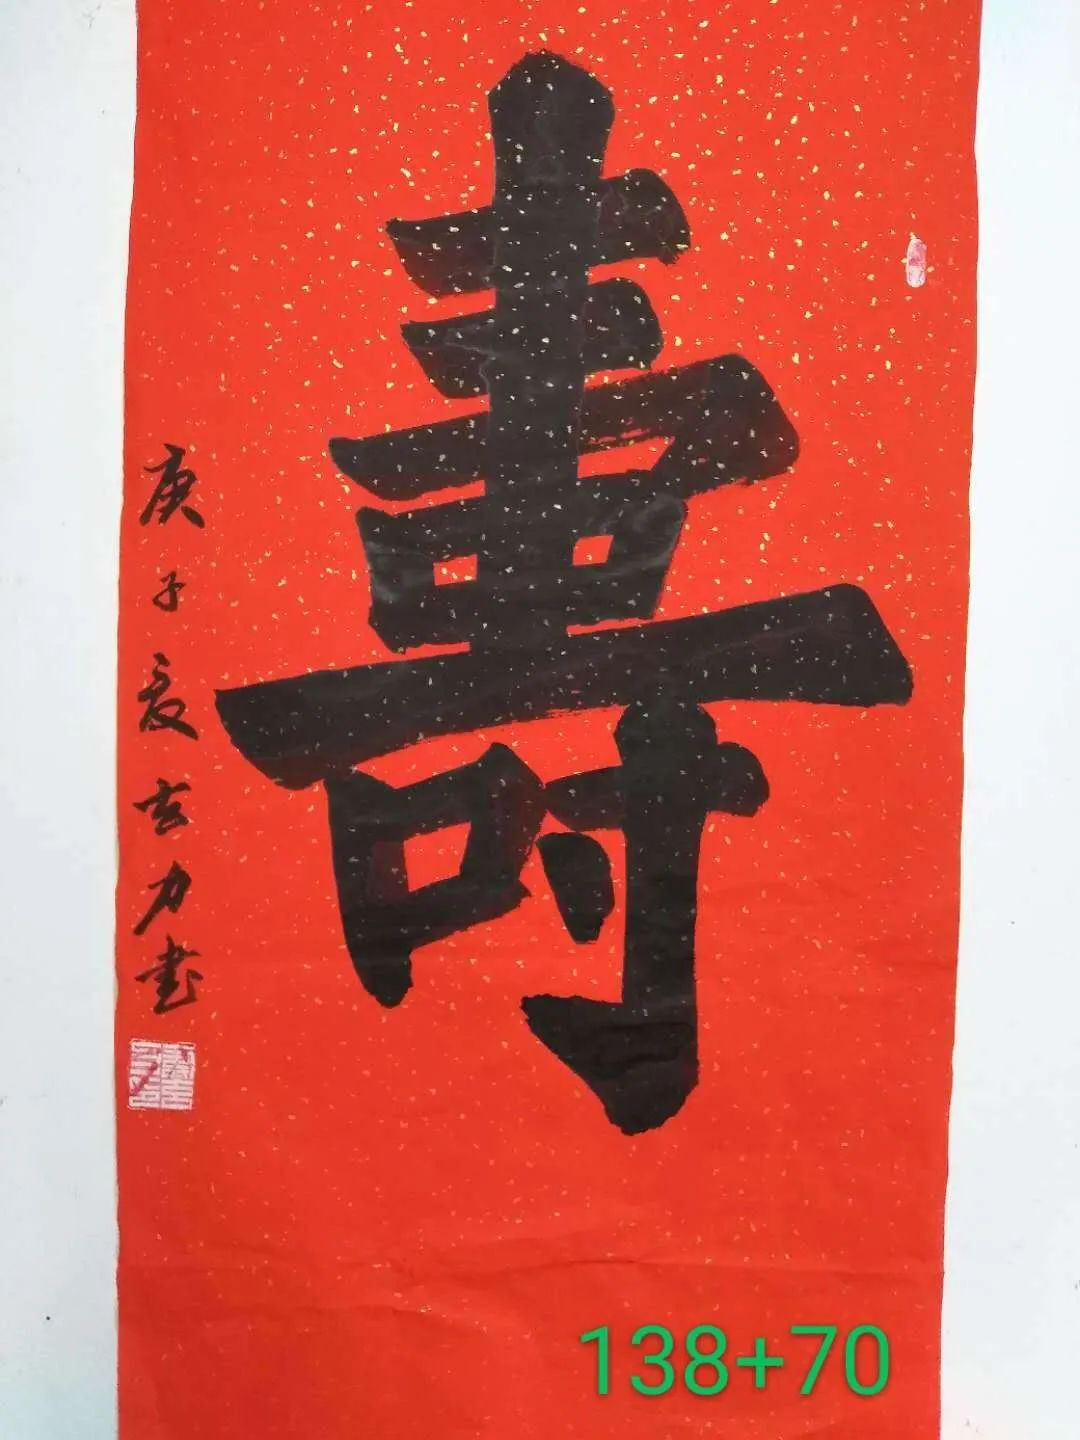 壽
庚子夏玄力書
138+70